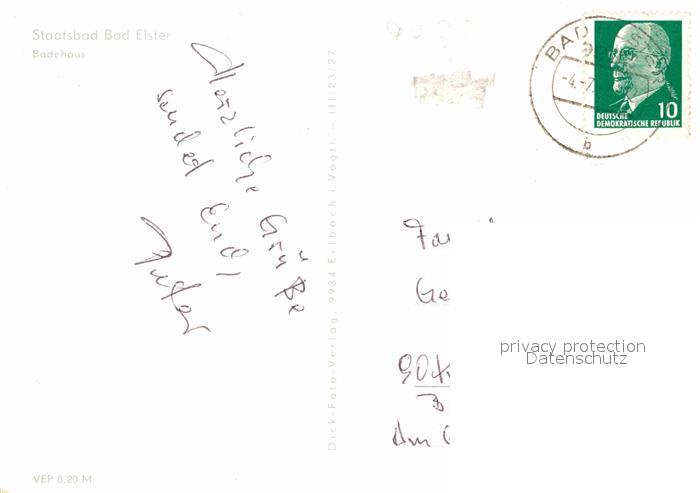 Staatsbad Bad Elster
Badehaus
Herzliche Grüße
sendet Euch
Dick-Foto-Verlag, 9934 Erlbach i. Vogtl. – III/23/27
BAD
-4.-7
b
10
DEUTSCHE
DEMOKRATISCHE REPUBLIK
Fa
Ge
90
Am
privacy protection
Datenschutz
VEP 0,20 M